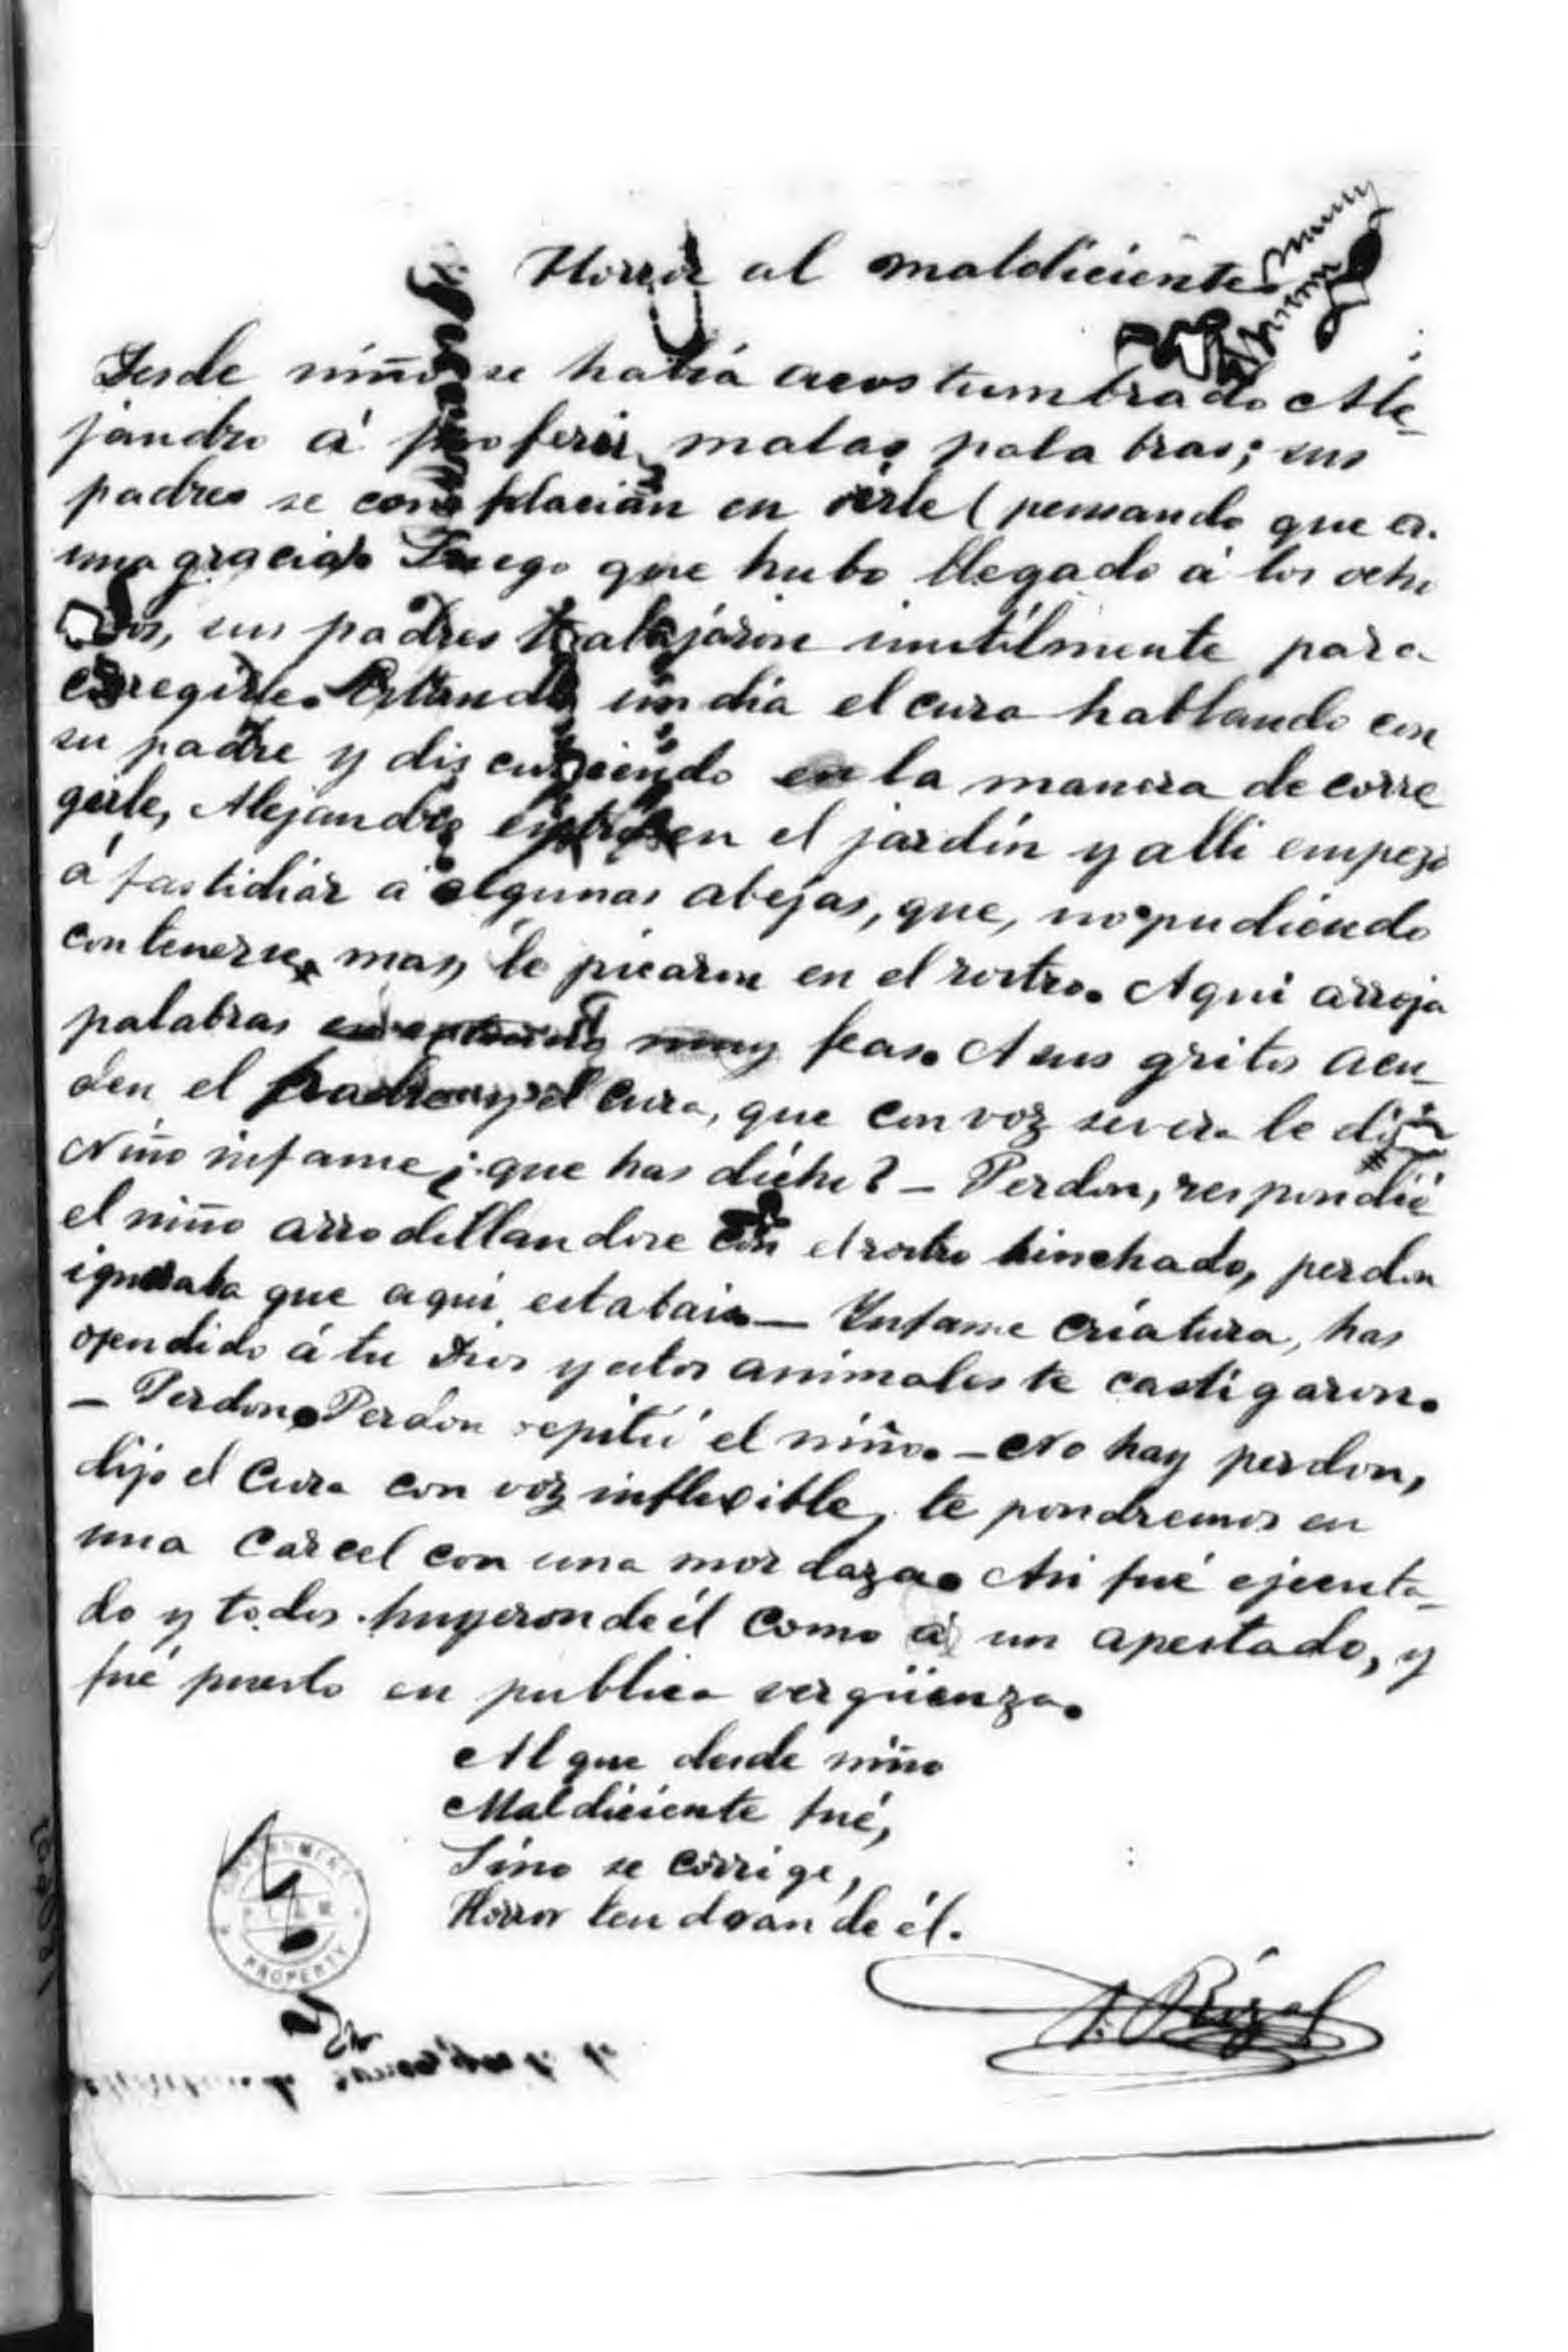 Horror al maldiciente
Desde niño se había acostumbrado Ale-
jandro á proferir malas palabras; sus
padres se complacian en oirle (pensando que er.
una gracia. Luego que hubo llegado á los ocho
sus padres trabajáron inutilmente para
corregirle. Estando un dia el cura hablando con
su padre y discurriendo en la manera de corre
girle, Alejandro entró en el jardín y alli empezó
á fastidiar a algunas abejas, que, no pudiendo
contenerse mas, le picaron en el rostro. Aqui arroja
palabras muy feas. A sus gritos acu-
den el padre y el cura, que con voz severa le dijo
Niño infame ¿que has dicho? – Perdon, respondió
el niño arrodillandose con el rostro hinchado, perdon
ignoraba que aqui estabais – Infame criatura, has
ofendido á tu Dios y estos animales te castigaron.
– Perdon. Perdón repitió el niño. – No hay perdon,
dijo el Cura con voz inflexible, te pondremos en
una Carcel con una mordaza. Asi fué ejecuta-
do y todos huyeron de él como á un apestado, y
fué puesto en publica vergüenza.
Al que desde niño
Maldiciente fué,
Sino se corrige,
Horror tendran de él.
J. Rizal
GOVERNMENT
PROPERTY